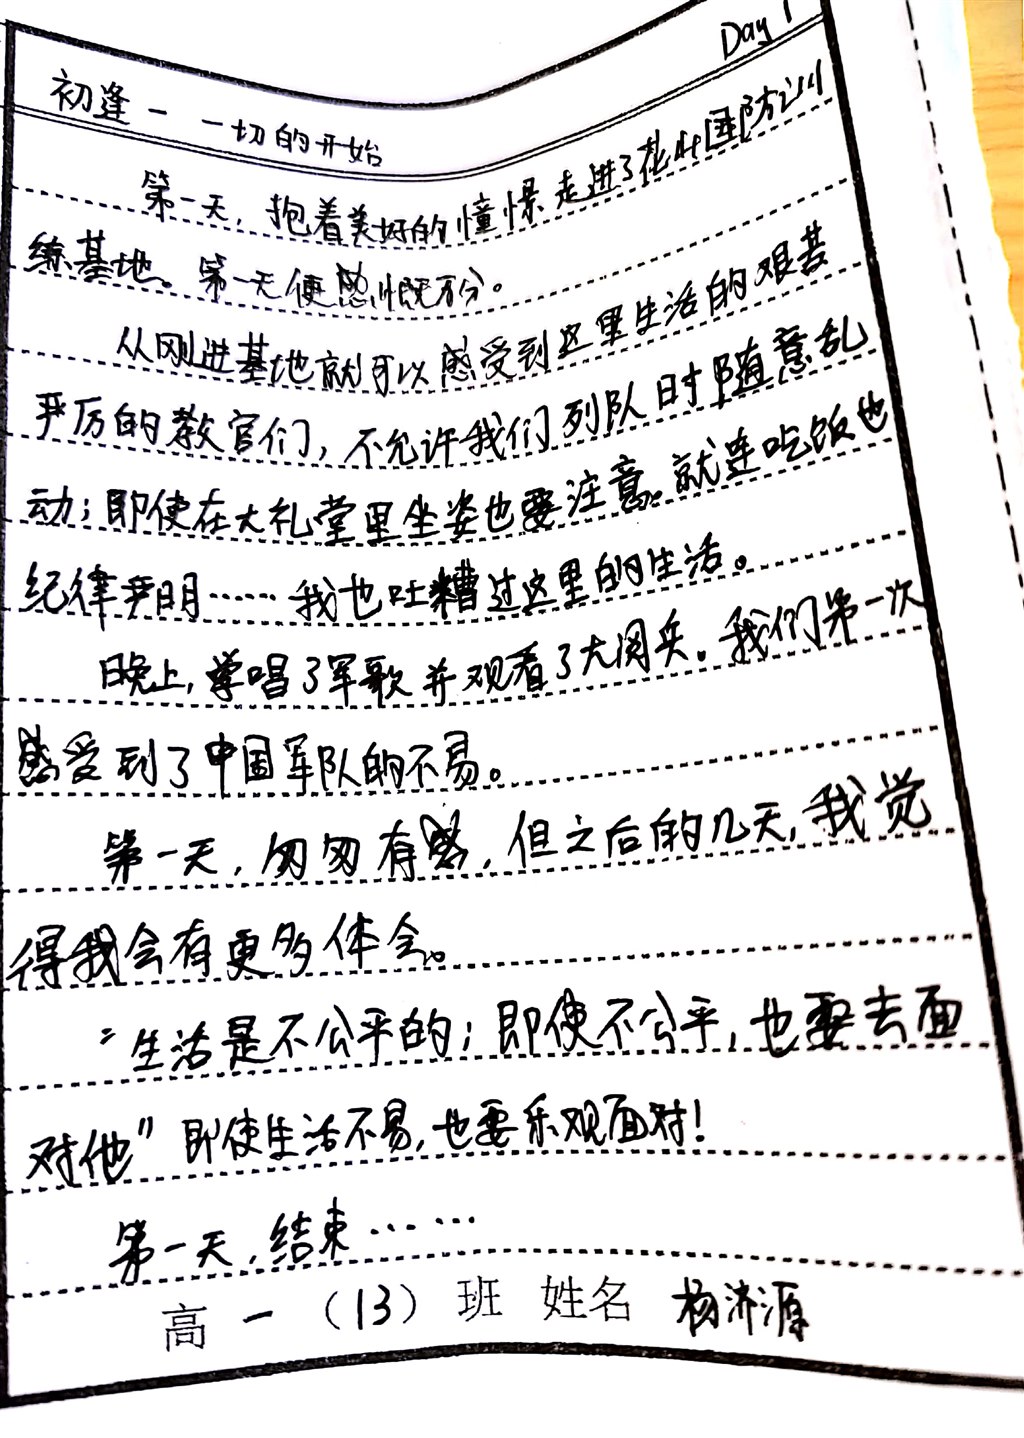 Day 1
初逢一 一切的开始
第一天，抱着美好的憧憬走进了花州国防训
练基地。第一天便感慨万分。
从刚进基地就可以感受到这里生活的艰苦
严厉的教官们，不允许我们列队时随意乱
动；即使在大礼堂里坐姿也要注意。就连吃饭也
纪律严明……我也吐糟过这里的生活。
晚上，学唱了军歌并观看了大阅兵。我们第一次
感受到了中国军队的不易。
第一天，匆匆有感，但之后的几天，我觉
得我会有更多体会。
“生活是不公平的；即使不公平，也要去面
对他”即使生活不易，也要乐观面对！
第一天，结束……
高一（13）班 姓名 杨济源